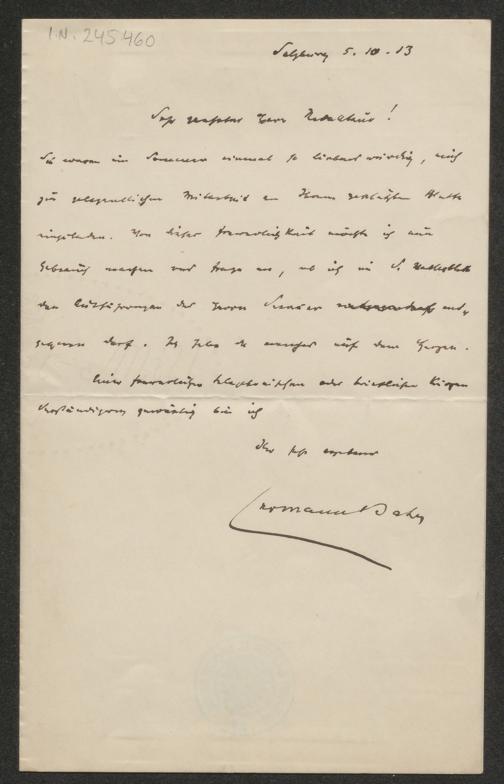 I.N. 245.460
Salzburg 5. 10. 13
Sehr geehrter Herr Redakteur!
Sie waren im Sommer einmal so liebenswürdig, mich
zur gelegentlichen Mitarbeit an Ihrem geschätzten Blatte
einzuladen. Von dieser Freundlichkeit möchte ich nun
Gebrauch machen und frage an, ob ich im S.
den Ausführungen des Herrn entgegnen
darf. Ich habe da manches auf dem Herzen.
Einer freundlichen telephonischen oder brieflichen kurzen
Verständigung gewärtig bin ich
Ihr sehr ergebener
Hermann Bahr